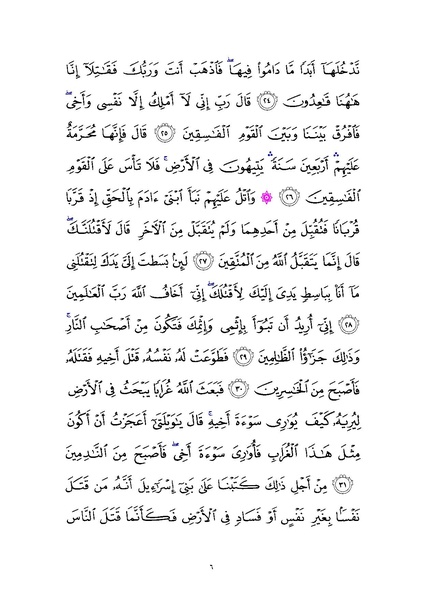 نَّدْخُلَهَآ أَبَدًا مَّا دَامُوا۟ فِيهَا ۖ فَٱذْهَبْ أَنتَ وَرَبُّكَ فَقَـٰتِلَآ إِنَّا
هَـٰهُنَا قَـٰعِدُونَ ﴿٢٤﴾ قَالَ رَبِّ إِنِّى لَآ أَمْلِكُ إِلَّا نَفْسِى وَأَخِى ۖ
فَٱفْرُقْ بَيْنَنَا وَبَيْنَ ٱلْقَوْمِ ٱلْفَـٰسِقِينَ ﴿٢٥﴾ قَالَ فَإِنَّهَا مُحَرَّمَةٌ
عَلَيْهِمْ ۛ أَرْبَعِينَ سَنَةً ۛ يَتِيهُونَ فِى ٱلْأَرْضِ ۚ فَلَا تَأْسَ عَلَى ٱلْقَوْمِ
ٱلْفَـٰسِقِينَ ﴿٢٦﴾ ۞ وَٱتْلُ عَلَيْهِمْ نَبَأَ ٱبْنَىْ ءَادَمَ بِٱلْحَقِّ إِذْ قَرَّبَا
قُرْبَانًا فَتُقُبِّلَ مِنْ أَحَدِهِمَا وَلَمْ يُتَقَبَّلْ مِنَ ٱلْـَٔاخَرِ قَالَ لَأَقْتُلَنَّكَ ۖ
قَالَ إِنَّمَا يَتَقَبَّلُ ٱللَّهُ مِنَ ٱلْمُتَّقِينَ ﴿٢٧﴾ لَئِنۢ بَسَطتَ إِلَىَّ يَدَكَ لِتَقْتُلَنِى
مَآ أَنَا۠ بِبَاسِطٍ يَدِىَ إِلَيْكَ لِأَقْتُلَكَ ۖ إِنِّىٓ أَخَافُ ٱللَّهَ رَبَّ ٱلْعَـٰلَمِينَ
﴿٢٨﴾ إِنِّىٓ أُرِيدُ أَن تَبُوٓأَ بِإِثْمِى وَإِثْمِكَ فَتَكُونَ مِنْ أَصْحَـٰبِ ٱلنَّارِ ۚ
وَذَٰلِكَ جَزَٰٓؤُا۟ ٱلظَّـٰلِمِينَ ﴿٢٩﴾ فَطَوَّعَتْ لَهُۥ نَفْسُهُۥ قَتْلَ أَخِيهِ فَقَتَلَهُۥ
فَأَصْبَحَ مِنَ ٱلْخَـٰسِرِينَ ﴿٣٠﴾ فَبَعَثَ ٱللَّهُ غُرَابًا يَبْحَثُ فِى ٱلْأَرْضِ
لِيُرِيَهُۥ كَيْفَ يُوَٰرِى سَوْءَةَ أَخِيهِ ۚ قَالَ يَـٰوَيْلَتَىٰٓ أَعَجَزْتُ أَنْ أَكُونَ
مِثْلَ هَـٰذَا ٱلْغُرَابِ فَأُوَٰرِىَ سَوْءَةَ أَخِى ۖ فَأَصْبَحَ مِنَ ٱلنَّـٰدِمِينَ
﴿٣١﴾ مِنْ أَجْلِ ذَٰلِكَ كَتَبْنَا عَلَىٰ بَنِىٓ إِسْرَٰٓءِيلَ أَنَّهُۥ مَن قَتَلَ
نَفْسًۢا بِغَيْرِ نَفْسٍ أَوْ فَسَادٍ فِى ٱلْأَرْضِ فَكَأَنَّمَا قَتَلَ ٱلنَّاسَ
٦